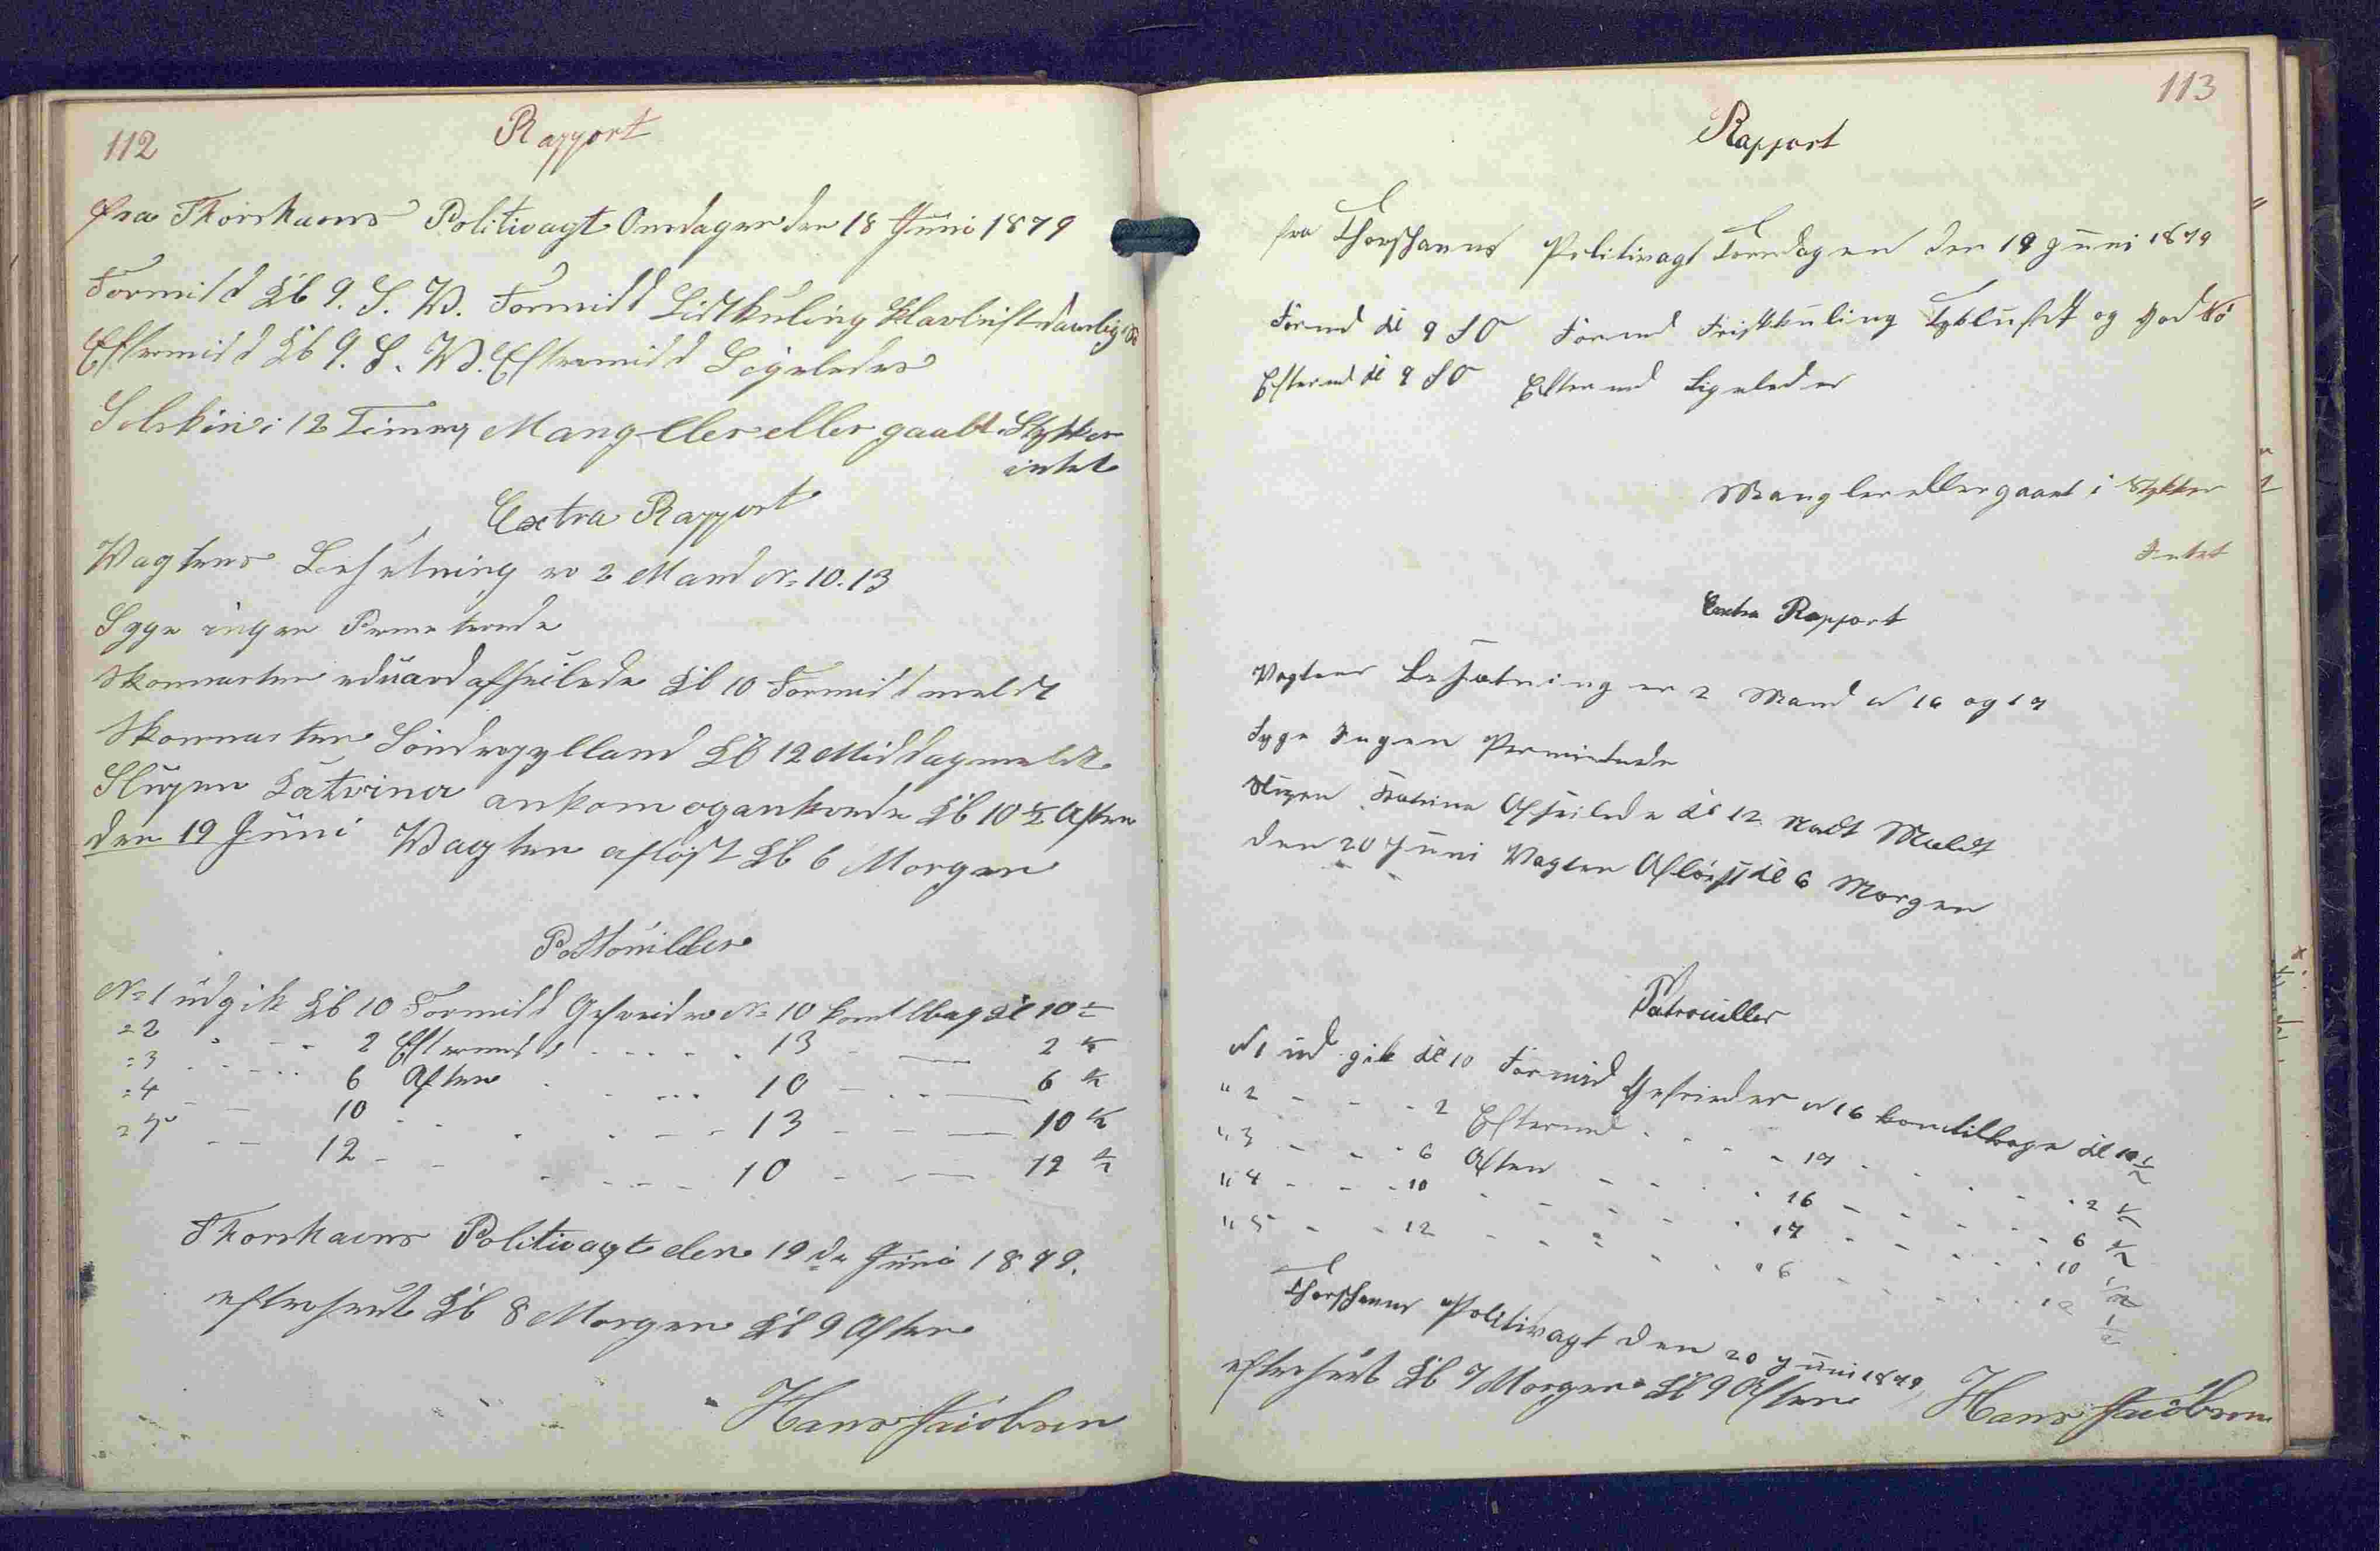 112
Rapport
fra Thorshavns Politivagt Onsdagen den 18 Juni 1879
Formidd Kl 9. S. W. Formidd Lidtkuling klarluft damlig Sø
Eftermidd Kl 9. S. W. Eftermidd Ligeledes
Solskin i 12 Timer Mangller eller gaaet i Stykker
intet
Extra Rapport
Wagtens Besætning er 2 Mand No 10. 13
Syge ingen Permeterede
Skonnerten eduard afseilede Kl 10 Formidd meldt
Skonnerten Sönderjylland Kl 12 Middag meldt
Slupen Katrina ankom og ankrede Kl 10 1/2 Aften
den 19 Juni Wagten aflöst Kl 6 Morgen
Patrouiller
No 1 udgik Kl 10 Formidd Gefreider No 10 kom tilbag Kl 10 1/2
" 2 - - - 2 Eftermidd - - - 13 - - 2 1/2
" 3 - - - 6 Aften - - - 10 - - 6 1/2
" 4 - - 10 - - - - 13 - - 10 1/2
" 5 - - 12 - - - - 10 - - 12 1/2
Thorshavns Politivagt den 19de Juni 1879.
efterseet Kl 8 Morgen Kl 9 Aften
Hans Jacobsen
113
Rapport
fra Thorshavns Politivagt Torsdagen den 19 Juni 1879
Formd Kl 9 SO Formd Friskkuling Tykluft og god Sö
Eftermd Kl 9 SO Eftermd Ligeledes
Mangler eller gaaet i Stykker
Intet
Extra Rapport
Vagtens Besætning er 2 Mand No 16 og 17
Syge Ingen Permiterede
Slupen Katrina Afseilede Kl 12 Nadt Meldt
den 20 Juni Vagten Aflöst Kl 6 Morgen
Patrouiller
No 1 ud gik Kl 10 Formid Gefreider No 16 kom tilbage Kl 10 1/2
" 2 - - - 2 Eftermd - - - 17 - - - 2 1/2
" 3 - - - 6 Aften - - - 16 - - - 6 1/2
" 4 - - - 10 - - - - 17 - - - 10 1/2
" 5 - - - 12 - - - - 16 - - - 12 1/2
Thorshavns Politivagt den 20 Juni 1879
efterseet Kl 7 Morgen Kl 9 Aften Hans Jacobsen